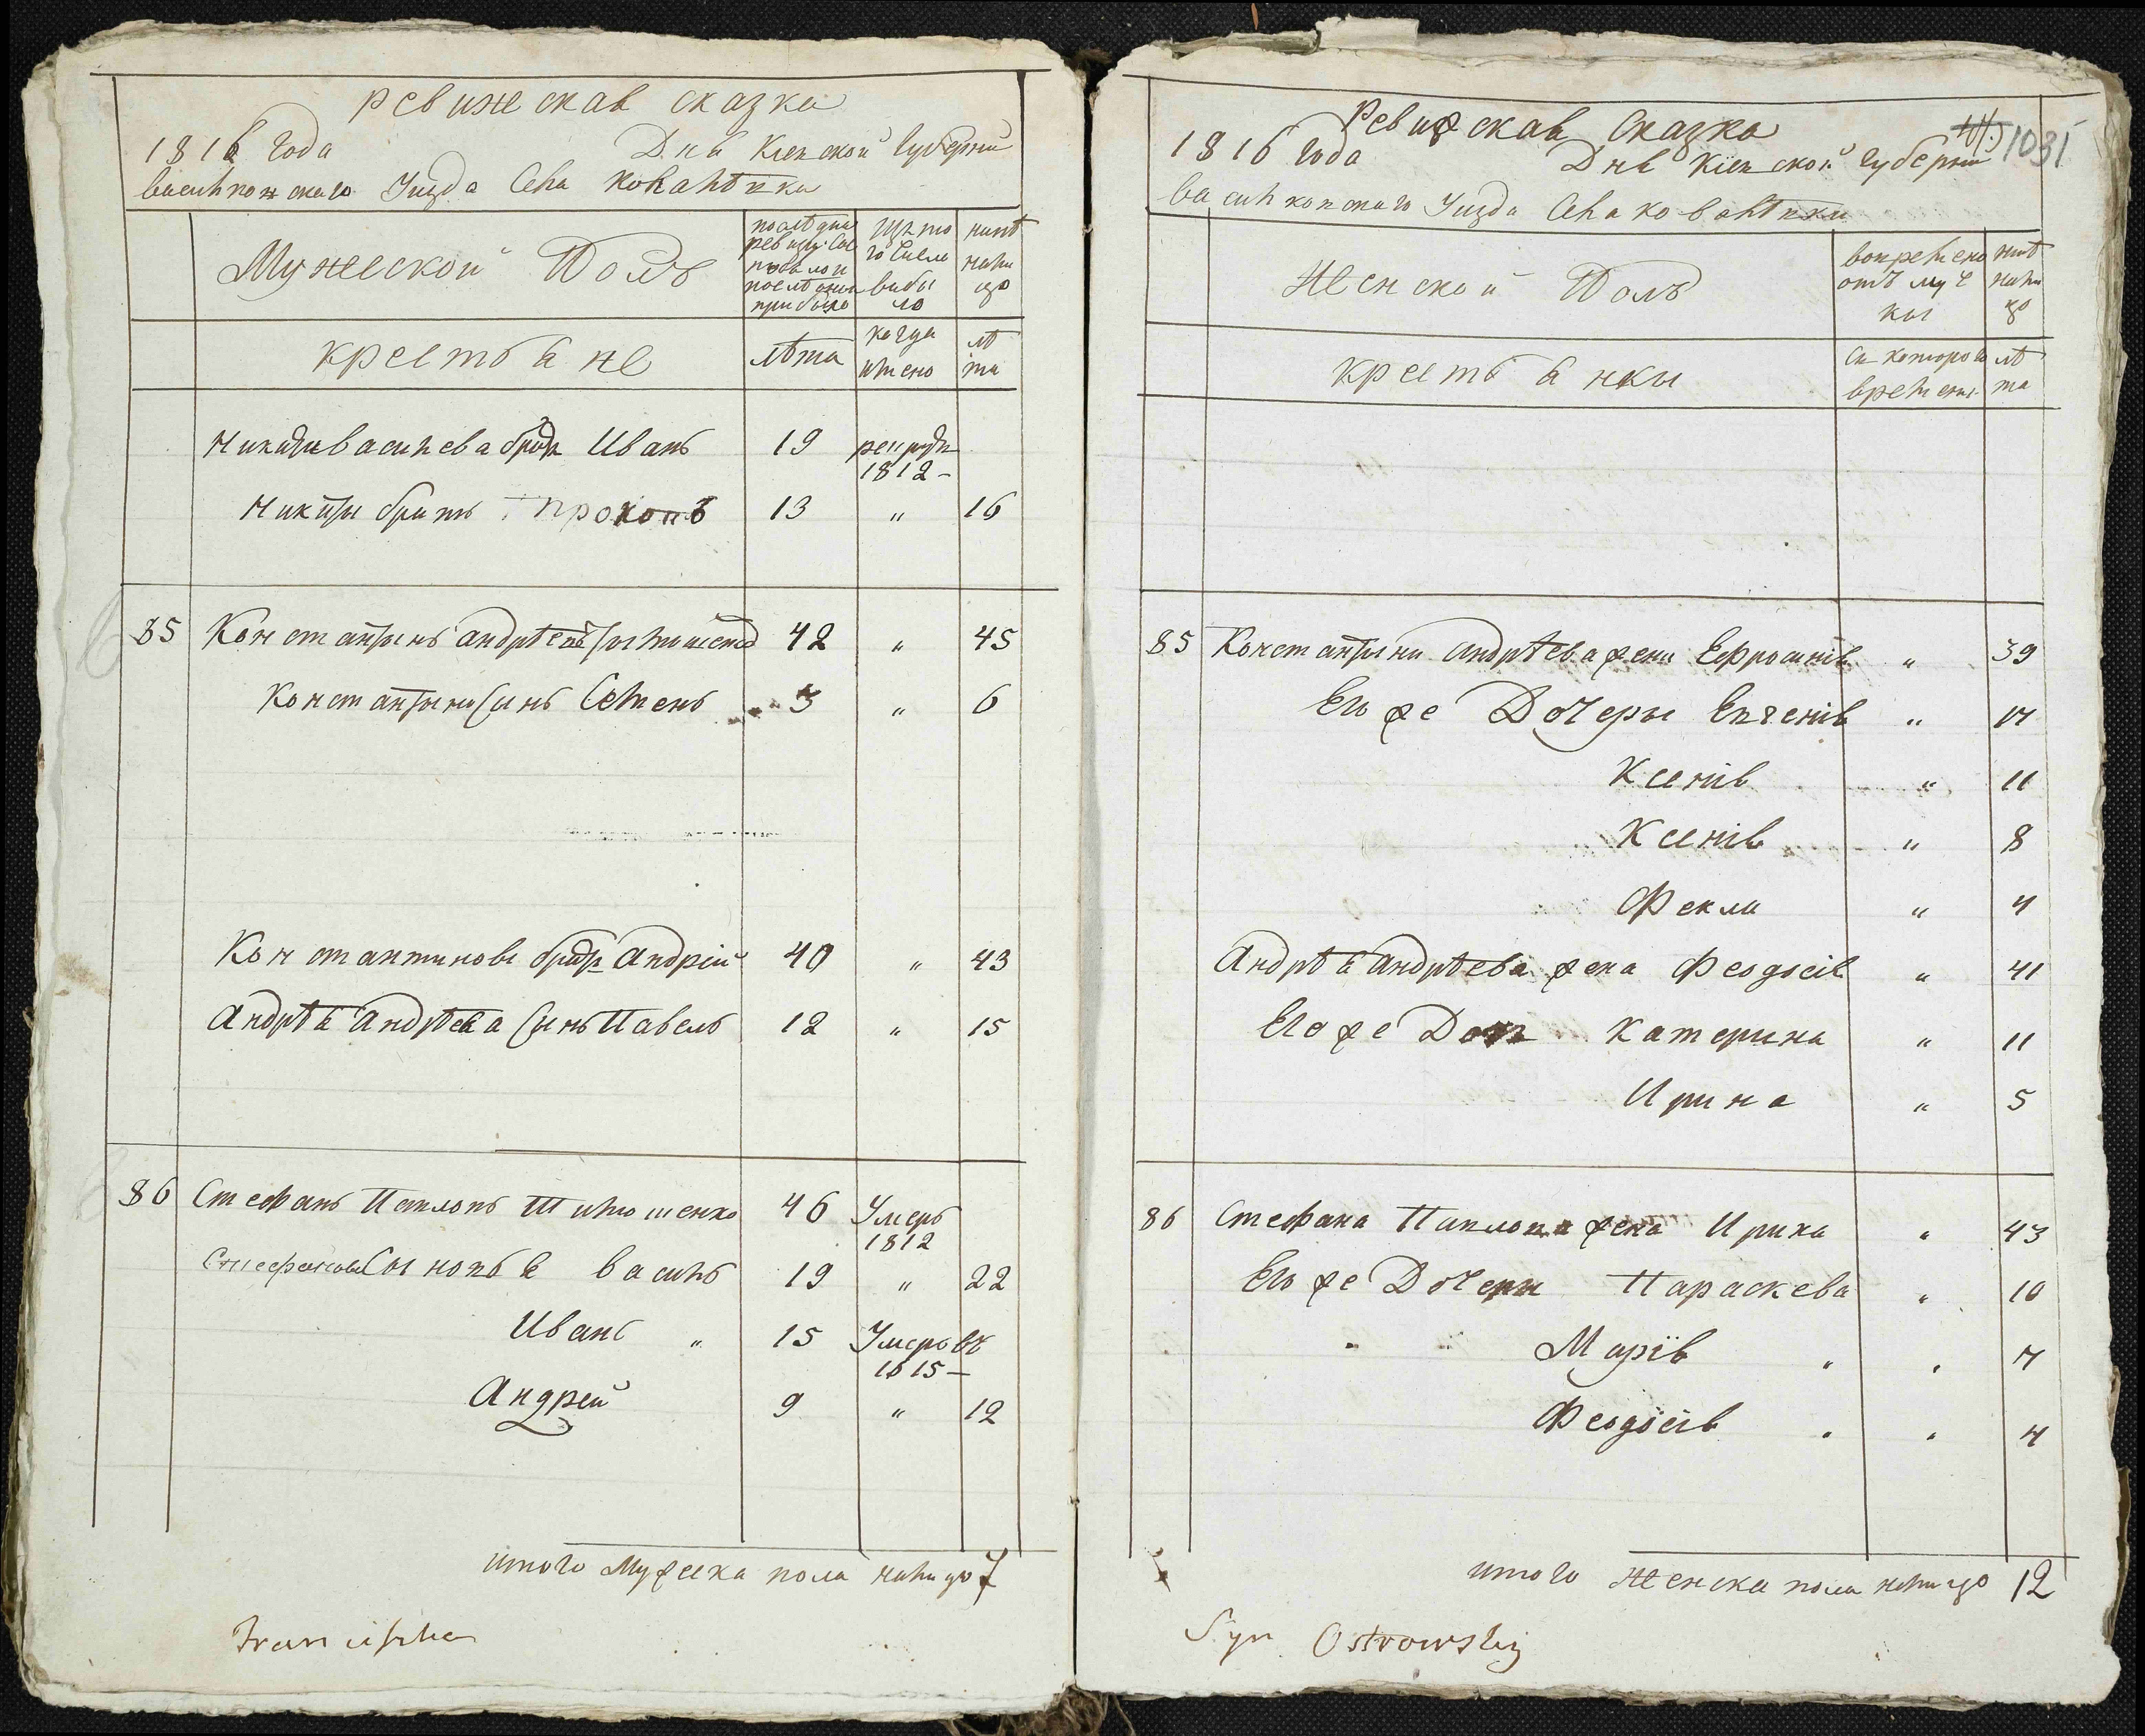 Ревижская сказка
1816 года Дня Киевской Губернии
васильковскаго Уизда Села Ковалѣвки
Мужеской Полъ
последню
ревизию Сос
тояло и
после оныя
прибыло
изъ то
го числа
выбы
ло
нынѣ
нали
цо
крестьяне
лѣта
когда
имено
лѣ
та
Никиты васильева братъ Иванъ 19 рекрутъ
1812 –
Никиты братъ Прокопъ 13 " 16
85 Константинъ андрѣевъ Тимошенко 42 " 45
Константина Сынъ Семенъ 3 " 6
Константиновъ братъ Андрій 40 " 43
Андрѣя Андрѣева Сынъ Павелъ 12 " 15
86 Стефанъ Павловъ Тимошенко 46 Умеръ
1812
Стефановы Сыновья василь 19 " 22
Иванъ " 15 Умеръ въ
1815 –
Андрей 9 " 12
итого Мужеска пола налицо 7
Franciszka
1031
Ревизская Сказка
1816 года Дня Кіевской губернии
васильковскаго Уизда Села Ковалѣвки
Женской Полъ
вопремено
отлуч
кы
нинѣ
нали
цо
крестьянкы
Съ котораго
времени
лѣ
та
85 Константина андрѣева жена Ефросинія " 39
Его же Дочеры Евгенія " 14
Ксенія " 11
Ксенія " 8
Фекла " 4
Андрѣя андрѣева жена Феодосія " 41
Его же Дочь Катерина " 11
Ирина " 5
86 Стефана Павлова жена Ирина " 43
Его же Дочери Параскева " 10
Марія " " 7
Феодосія " " 4
итого Женска пола налицо 12
Syn Ostrowskij